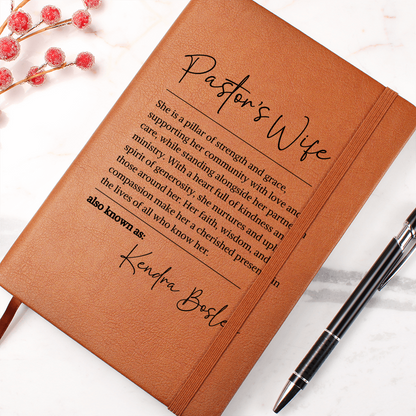 Pastor's Wife
She is a pillar of strength and grace,
supporting her community with love and
care, while standing alongside her
ministry. With a heart full of kindness
spirit of generosity, she nurtures and
those around her. Her faith, wisdom, and
compassion make her a cherished in
the lives of all who know her.
also known as:
Kendra